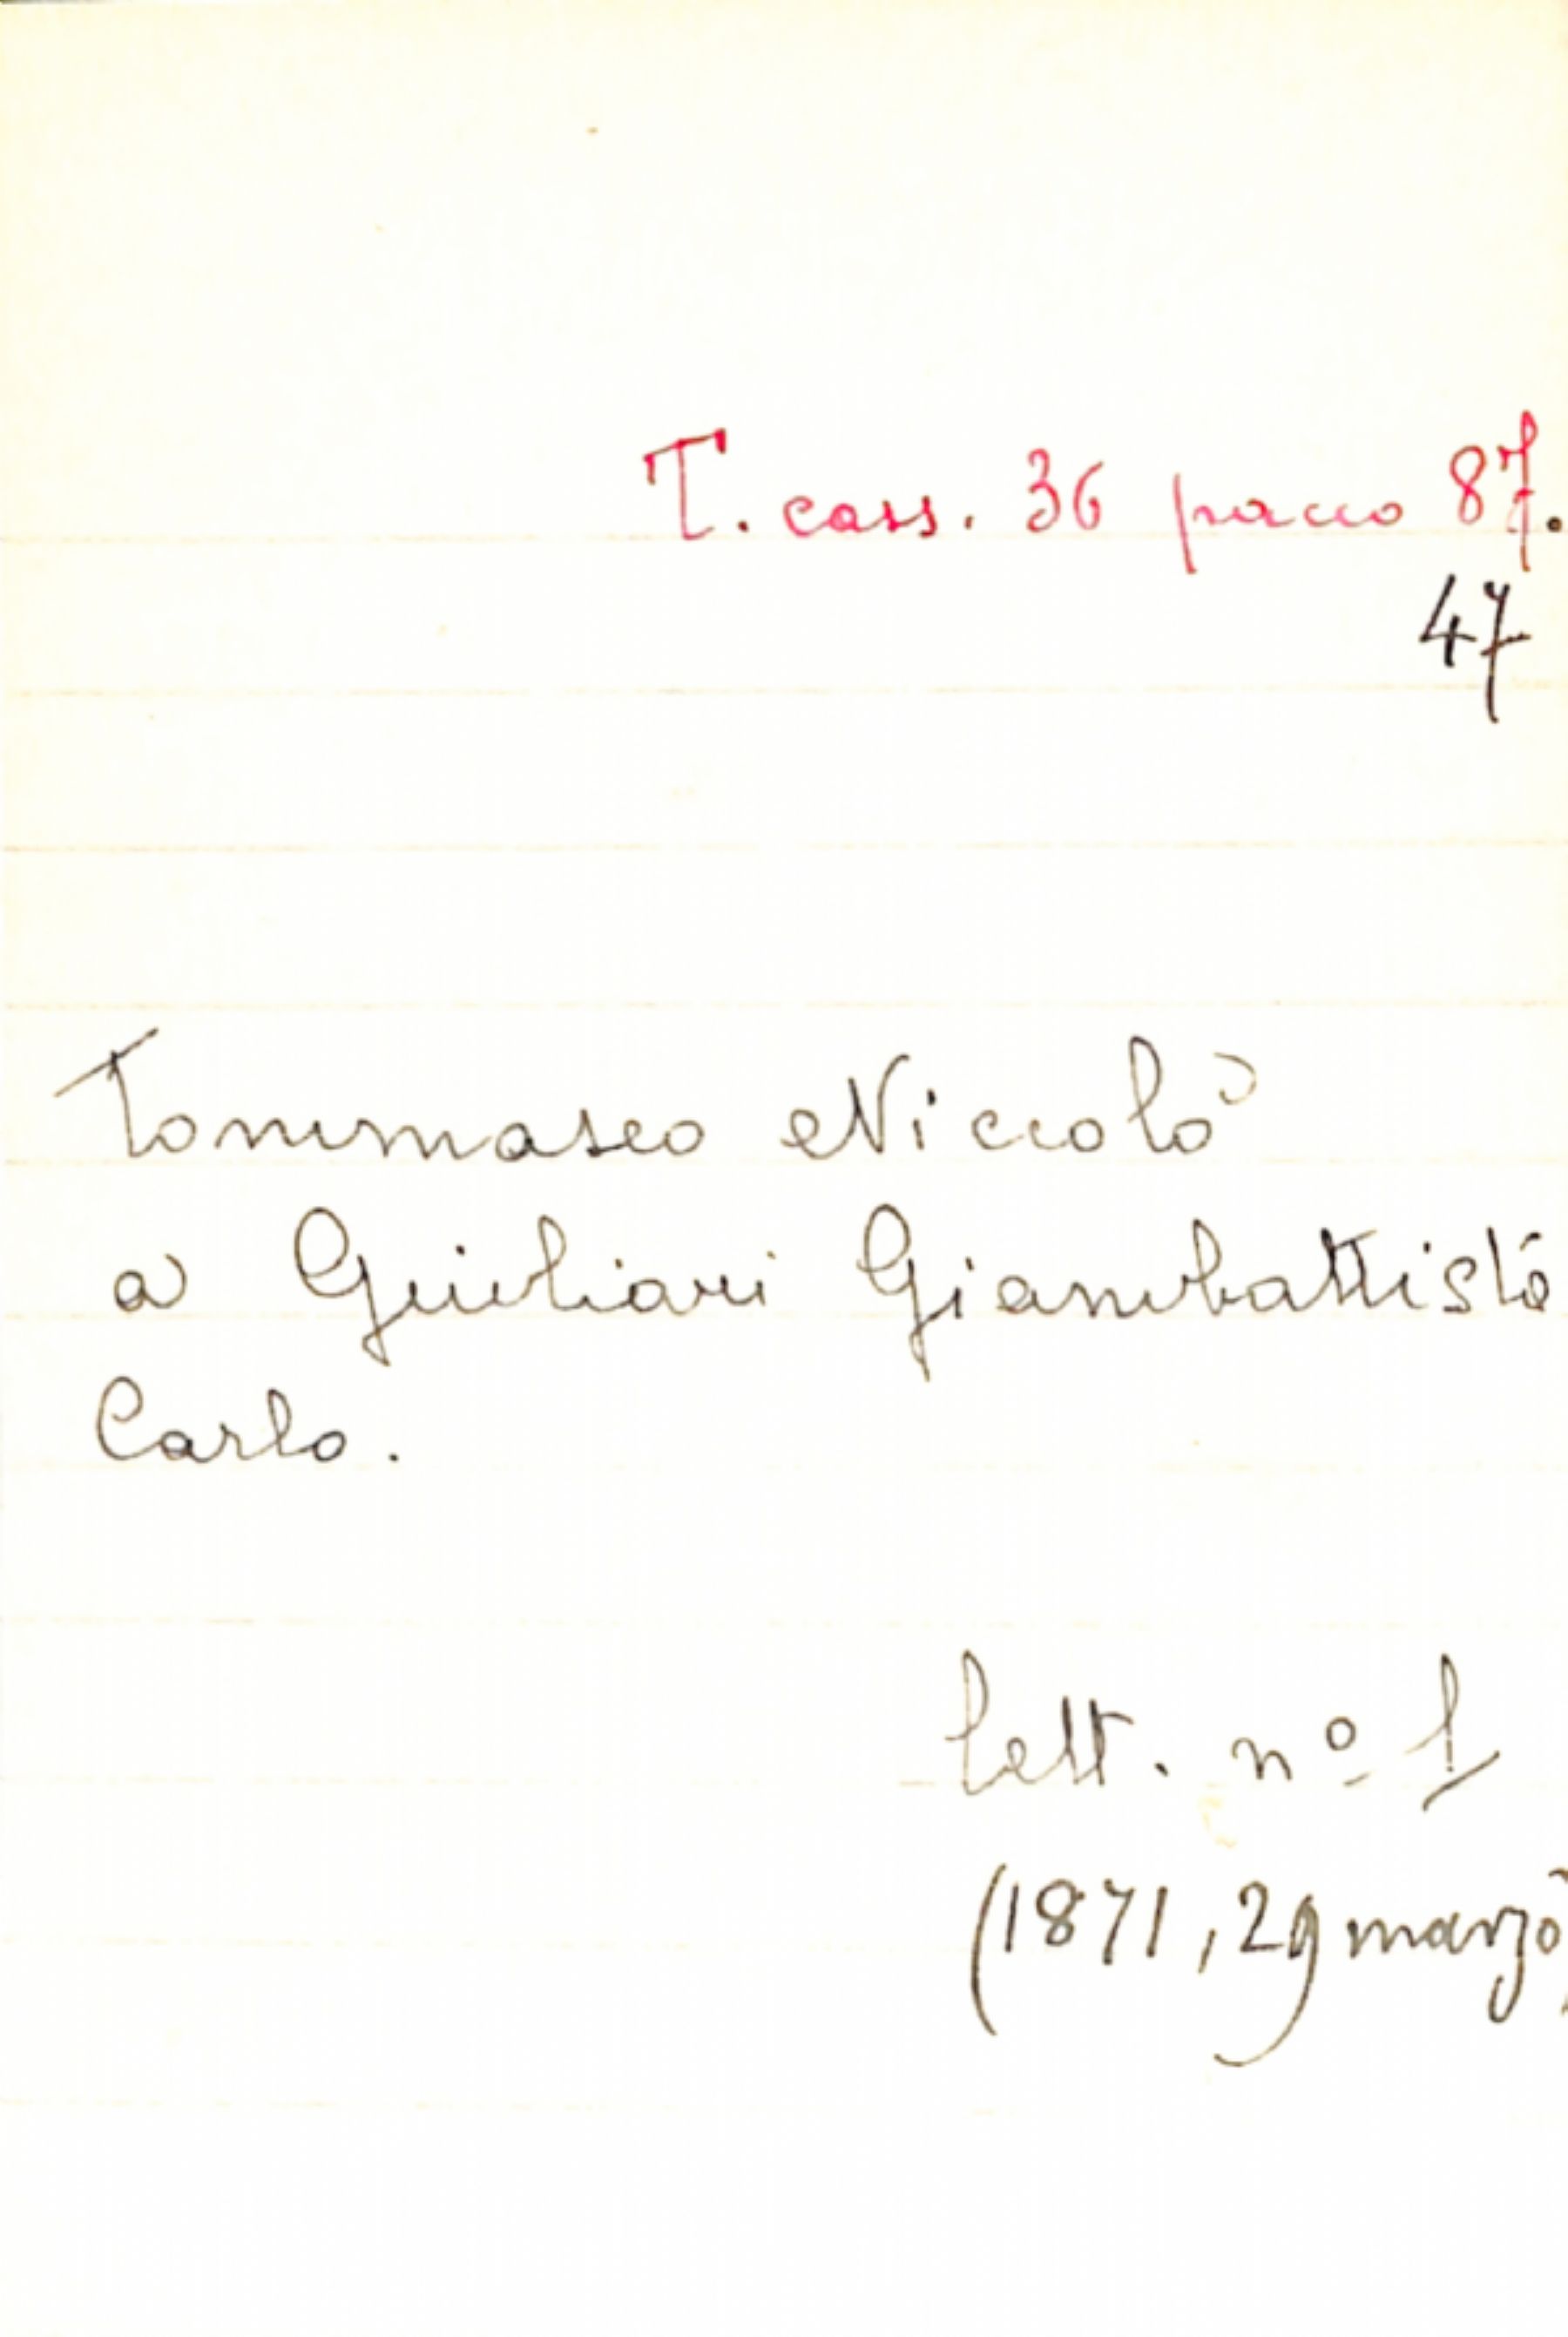 T. cass. 36 pacco 87.
47
Tommaseo Niccolò
a Giuliari Giambattista
Carlo.
lett. nº 1
(1871, 29 marzo)